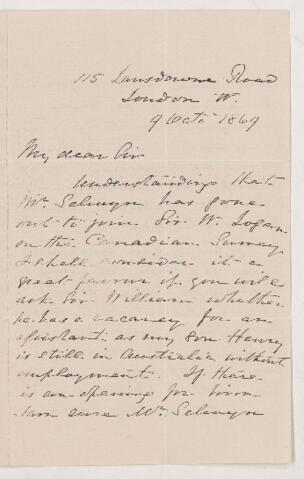 115 Lansdowne Road
London W.
9 Octr. 1869
My dear Sir
Understanding that
Mr. Selwyn has gone
out to join Sir W. Logan
on the Canadian Survey
I shall consider it a
great favour if you will
ask Sir William whether
he has a vacancy for an
assistant: as my son Henry
is still in Australia without
employment. If there
is an opening for him
I am sure Mr. Selwyn